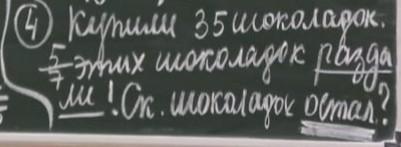 ④ Купили 35 шоколадок.
5/7 этих шоколадок разда
ли! Ск. шоколадок остал?